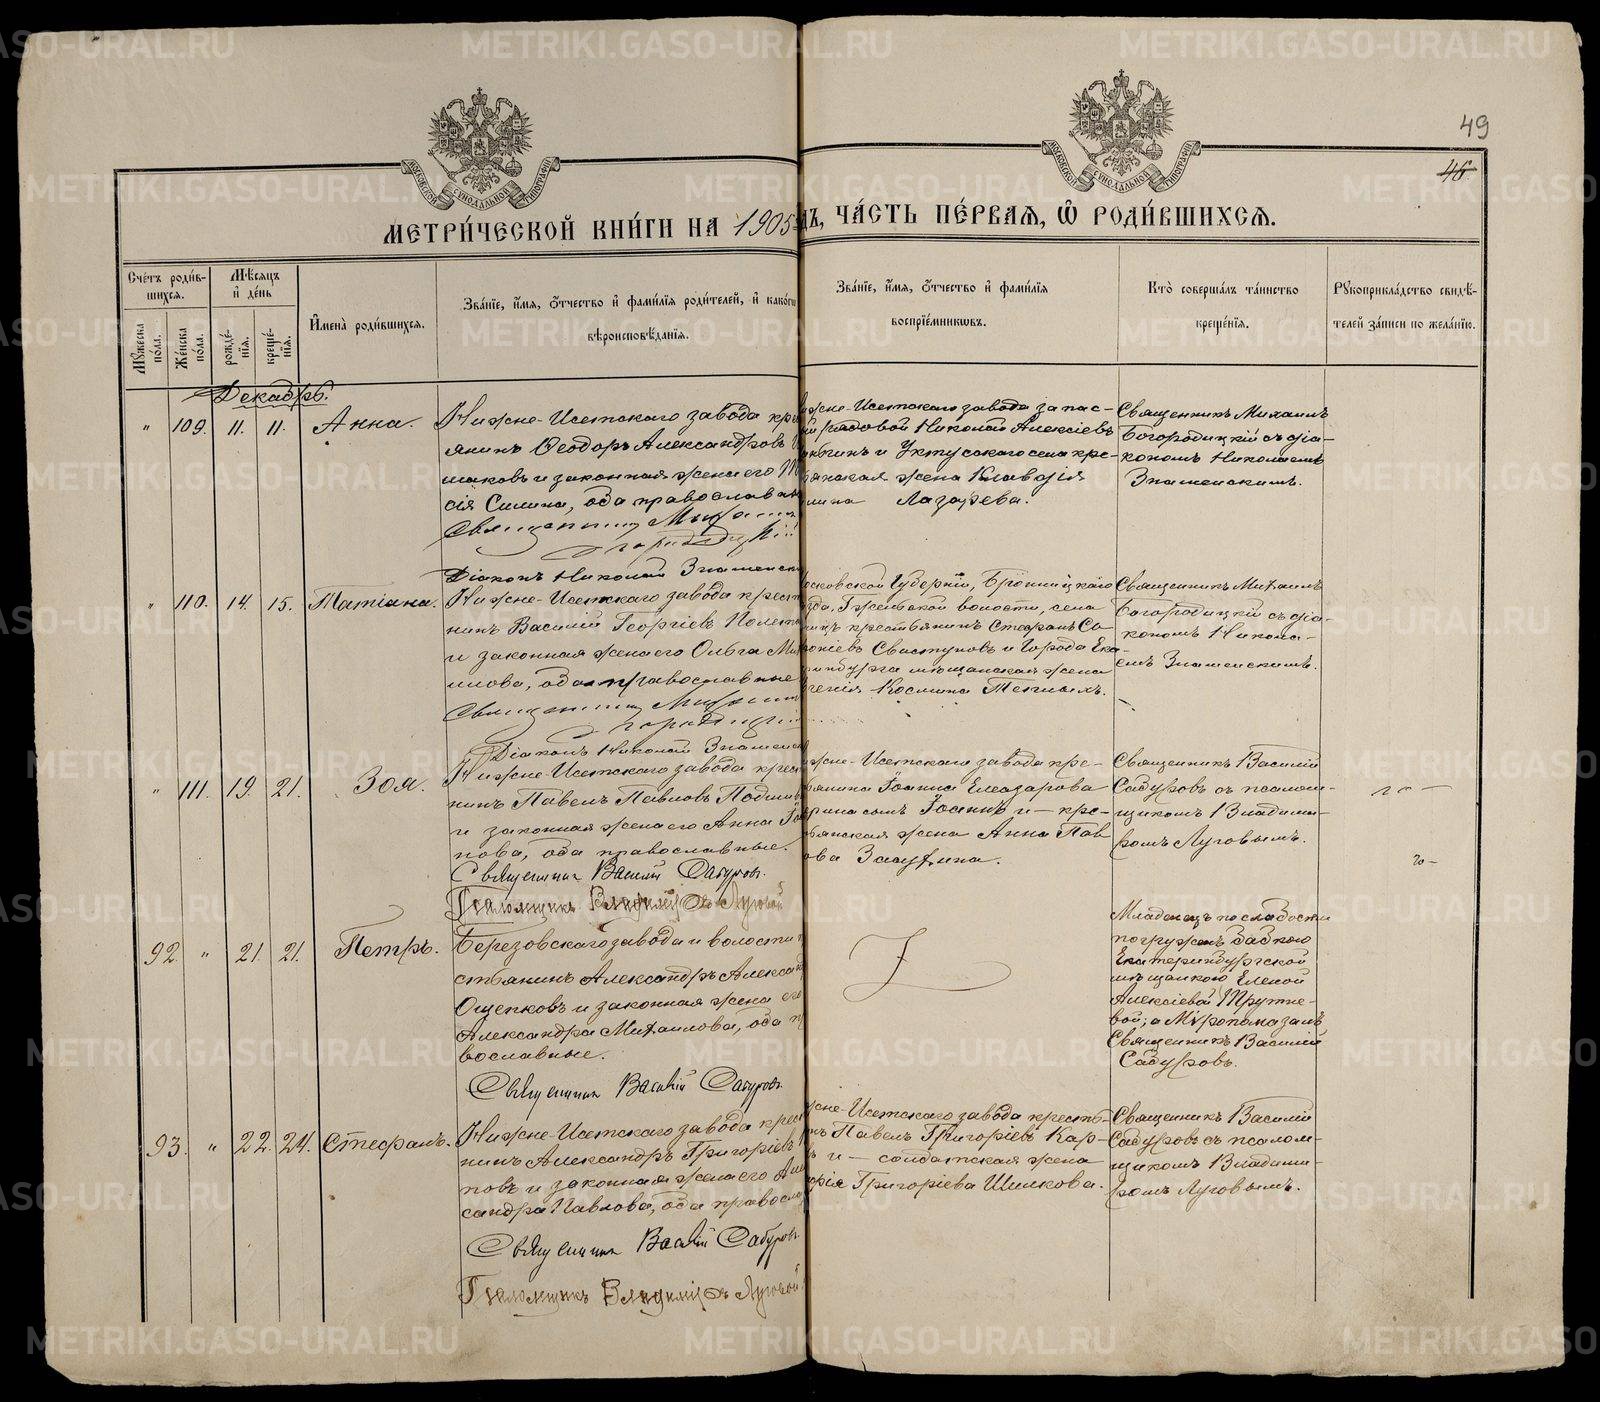 49
46
МОСКОВСКОЙ СѴНОДАЛЬНОЙ ТИПОГРАФІИ
МОСКОВСКОЙ СѴНОДАЛЬНОЙ ТИПОГРАФІИ
МЕТРИ́ЧЕСКОЙ КНИ́ГИ НА 1905 ДЪ, ЧА́СТЬ ПЕ́РВАЯ, Ѡ РОДИ́ВШИХСЯ.
Сче́тъ роди́в-
шихся.
Мѣсяцъ
и де́нь
Му́жеска по́ла.
Же́нска по́ла.
рожде́нія.
креще́нія.
Имена̀ роди́вшихся.
Зва́ніе, и́мя, о́тчество и фами́лія роди́телей, и како́гѡ
вѣроисповѣ́данія.
Зва́ніе, и́мя, о́тчество и фами́лія
воспріе́мникѡвъ.
Кто̀ соверша́лъ та́инство
креще́нія.
Рукоприкла́дство свидѣ́-
телей за́писи по жела́нію.
Декабрь.
" 109. 11. 11. Анна.
Нижне-Исетскаго завода кре
янинъ Ѳеодоръ Александровъ
шаковъ и законная жена его
сія Силина, оба православн
Священникъ Миха
Діаконъ Николай Знаменск
жне-Исетскаго завода запас-
й рядовой Николай Алексіевъ
и Уктусскаго села кре-
тьянская жена Клавдія
Лазарева.
Священникъ Михаилъ
Богородицкій съ діа-
кономъ Николаемъ
Знаменскимъ.
" 110. 14. 15. Татіана.
Нижне-Исетскаго завода крест
нинъ Василій Георгіевъ Полет
и законная жена его Ольга Ми
илова, оба православные
Священникъ Михаил
Діаконъ Николай Знаменск
осковской Губерніи, Бронницкаго
зда, Гжельской волости, села
крестьянинъ Стефанъ Са
оніевъ Свистуновъ и города Ека-
ринбурга мѣщанская жена
генія Космина Тенныхъ.
Священникъ Михаилъ
Богородицкій съ діа-
кономъ Никола-
емъ Знаменскимъ.
" 111. 19. 21. Зоя.
Нижне-Исетскаго завода крест
нинъ Павелъ Павловъ Подшив
и законная жена его Анна Іо
нова, оба православные.
Священникъ Василій Сабуровъ.
Псаломщикъ Владиміръ Луговой
жне-Исетскаго завода кре-
тьянина Іоанна Елеазарова
рина сынъ Іоаннъ и - кре-
тьянская жена Анна Пав
ова Зашурина.
Священникъ Василій
Сабуровъ съ псалом-
щикомъ Владими-
ромъ Луговымъ.
92 " 21. 21. Петръ.
Березовскаго завода и волости
стьянинъ Александръ Александ
Ощепковъ и законная жена его
Александра Михаилова, оба п
вославные.
Священникъ Василій Сабуровъ.
Младенецъ по слабости
погруженъ бабкою
Екатеринбургской
мѣщанкою Еленой
Алексіевой Трутне-
вой; а Мѵропомазалъ
Священникъ Василій
Сабуровъ.
93. " 22. 24. Стефанъ.
Нижне-Исетскаго завода крест
нинъ Александръ Григоріевъ
повъ и законная жена его Але
сандра Павлова, оба правосла
Священникъ Василій Сабуровъ
Псаломщикъ Владиміръ Луговой
жне-Исетскаго завода кресть-
нъ Павелъ Григоріевъ Кар-
ъ и - солдатская жена
рія Григоріева Шилкова.
Священникъ Василій
Сабуровъ съ псалом-
щикомъ Владими-
ромъ Луговымъ.
METRIKI.GASO-URAL.RU